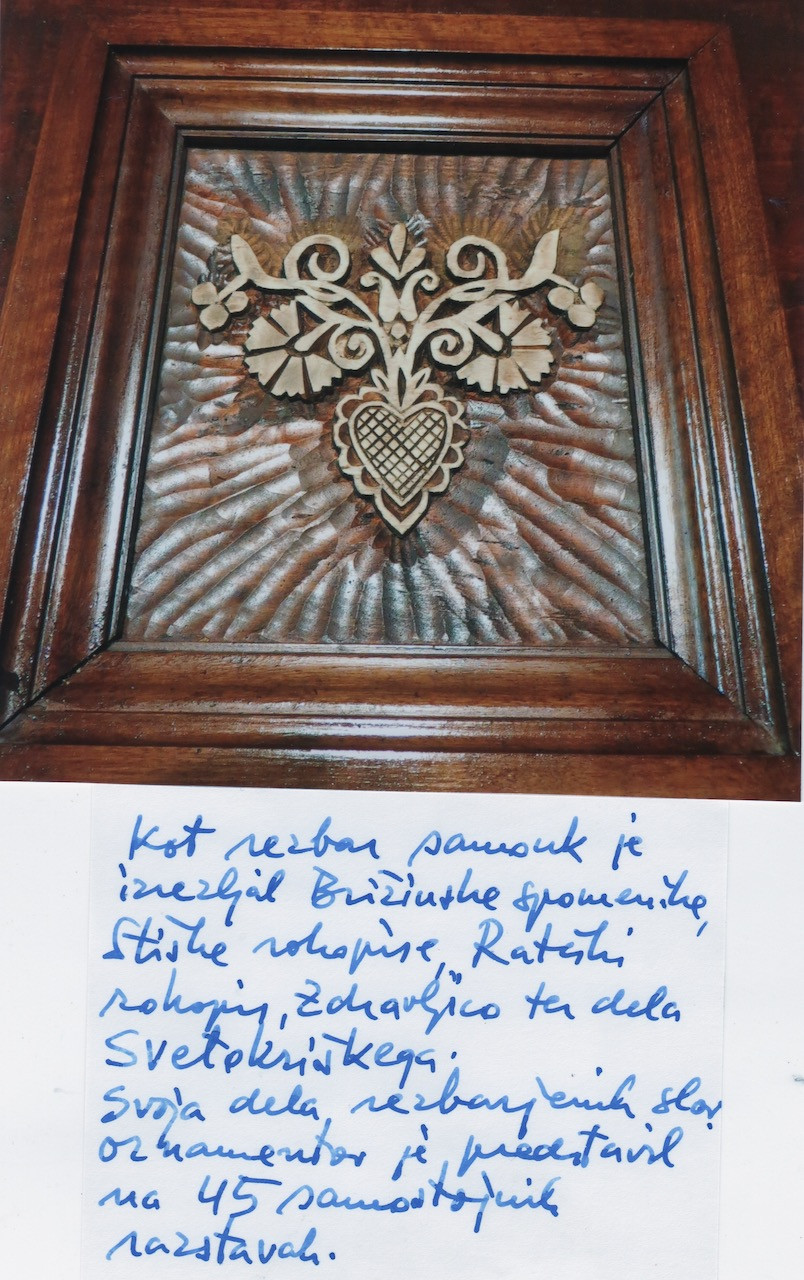 Kot rezbar samouk je
izrezljal Brižinske spomenike,
Stiške rokopise, Rateški
rokopis, Zdravljico ter dela
Svetokriškega.
Svoja dela, rezbarjenih slov.
ornamentov je predstavil
na 45 samostojnih
razstavah.